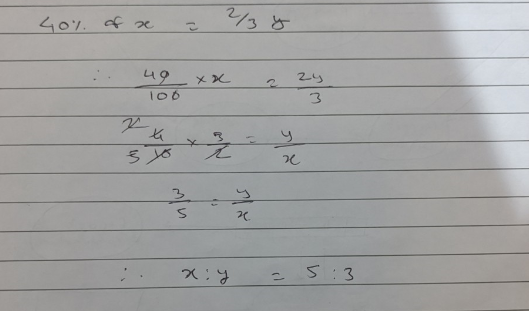 40% of x = 2/3 y
∴ 40/100 × x = 2y/3
4/10 × 3/2 = y/x
3/5 = y/x
∴ x : y = 5 : 3